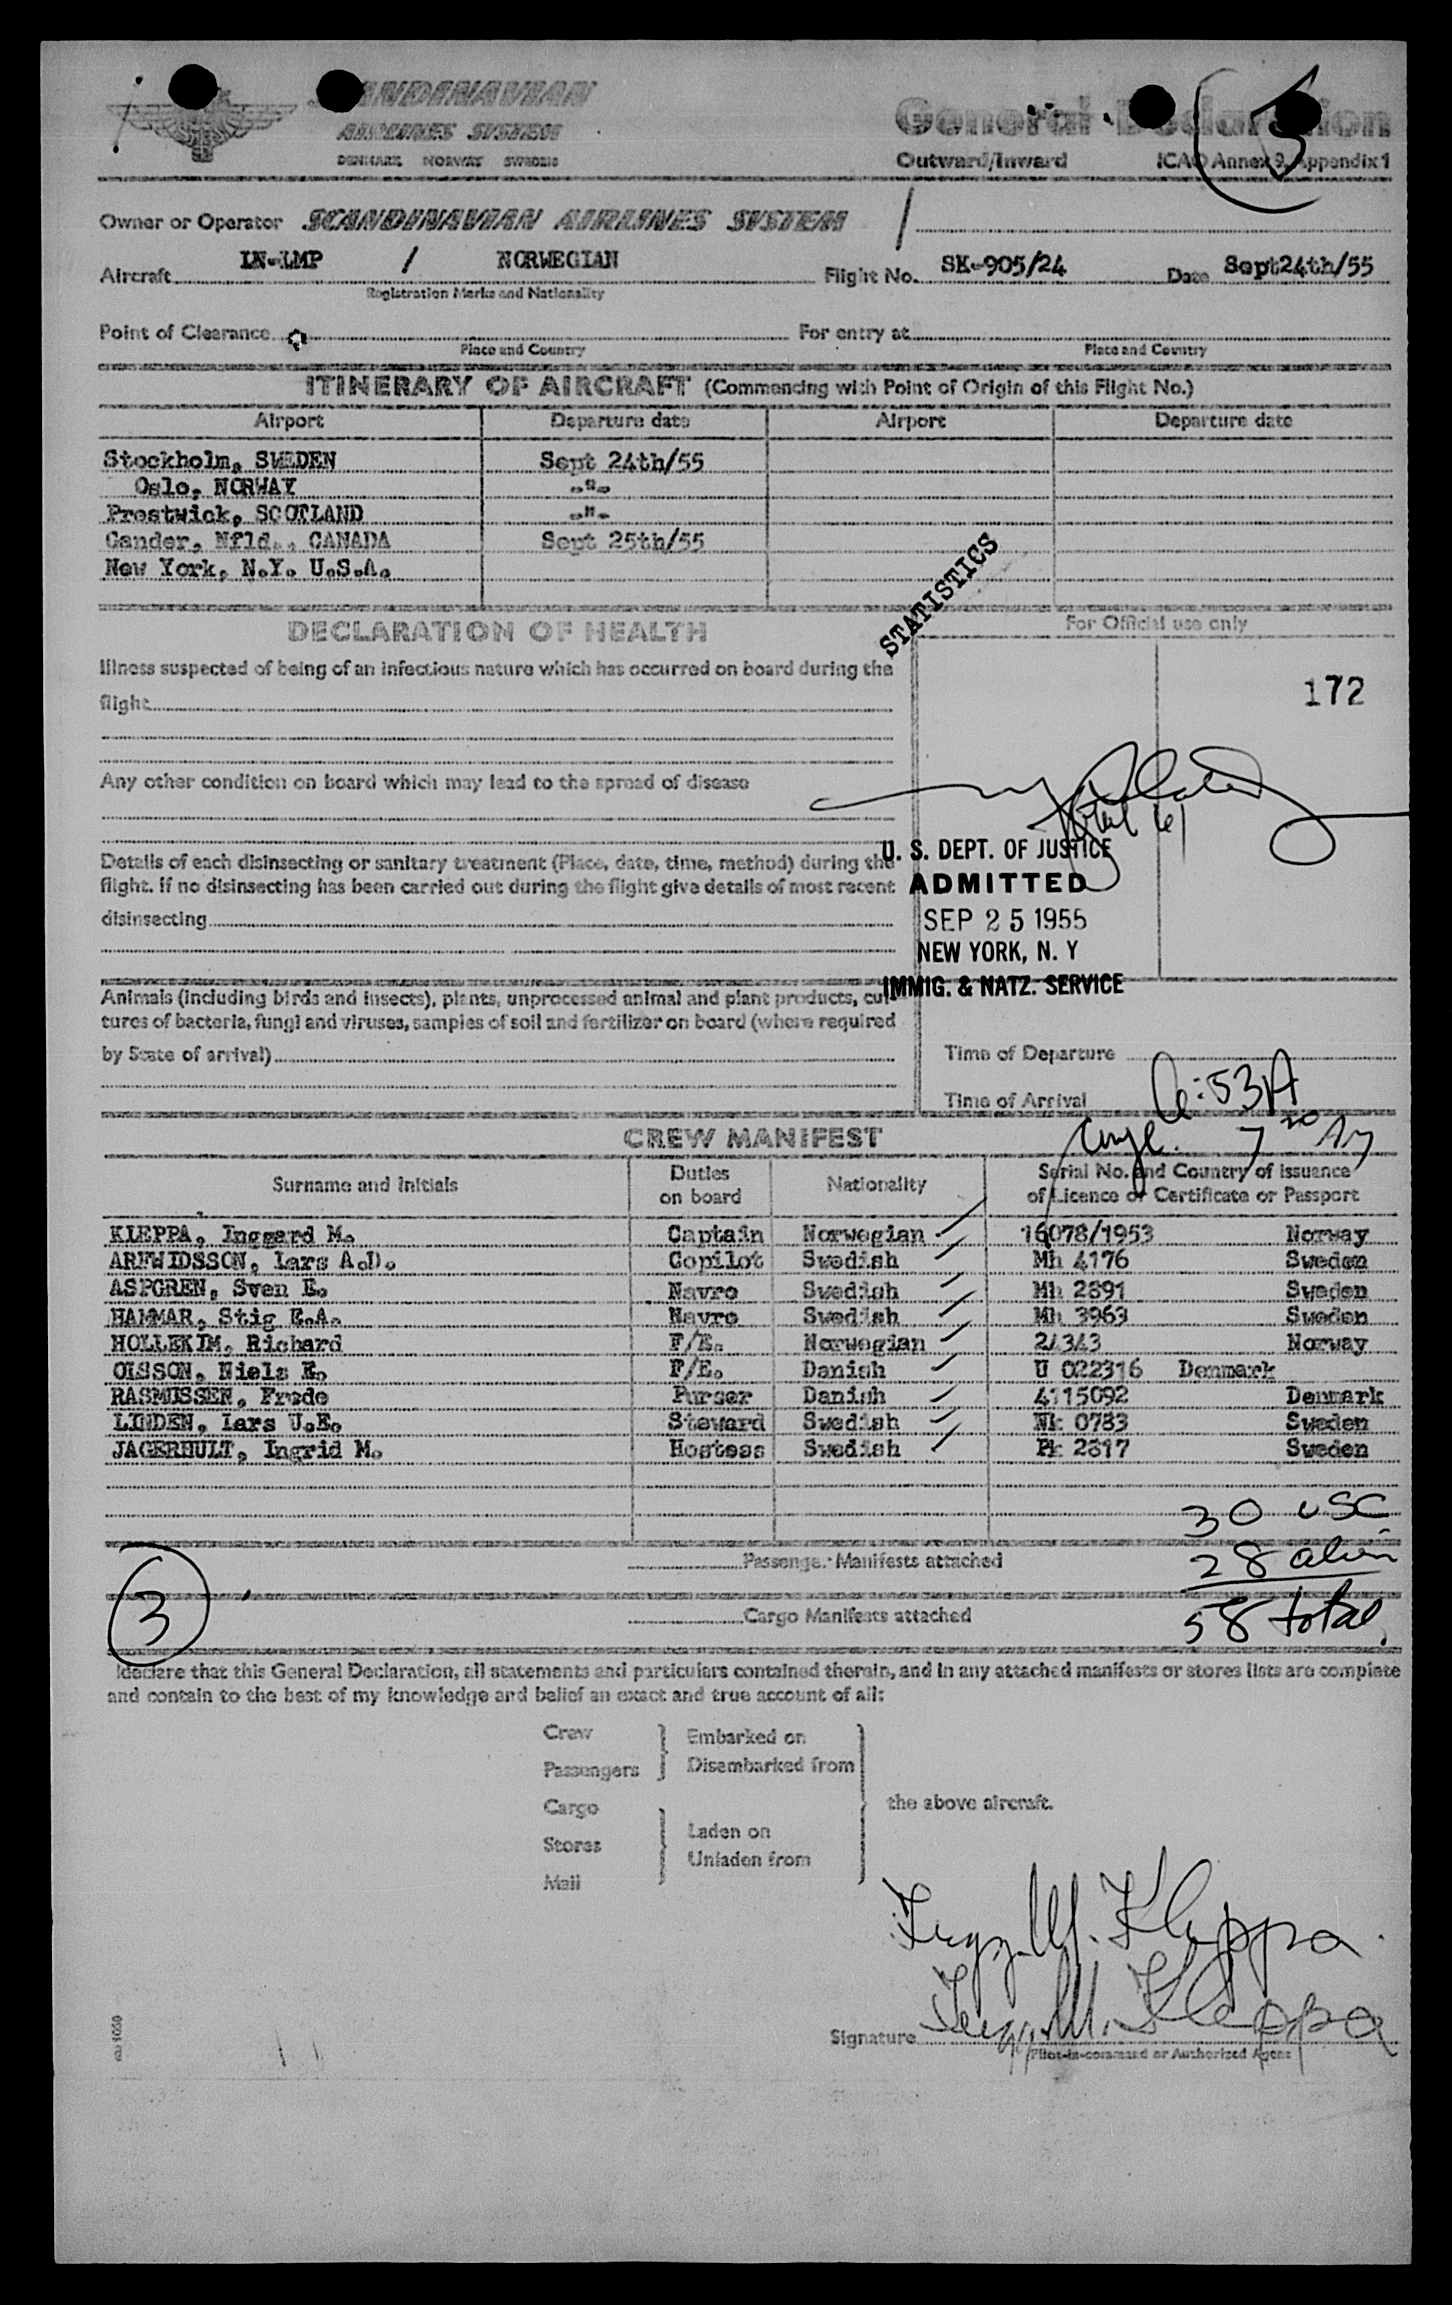 SCANDINAVIAN
AIRLINES SYSTEM
DENMARK NORWAY SWEDEN
General Declaration
Outward/Inward ICAO Annex 9, Appendix 1
Owner or Operator SCANDINAVIAN AIRLINES SYSTEM
Aircraft LN-LMP / NORWEGIAN Flight No. SK-905/24 Date Sept24th/55
Registration Marks and Nationality
Point of Clearance For entry at
Place and Country Place and Country
ITINERARY OF AIRCRAFT (Commencing with Point of Origin of this Flight No.)
Airport Departure date Airport Departure date
Stockholm, SWEDEN Sept 24th/55
Oslo, NORWAY -"-
Prestwick, SCOTLAND -"-
Gander, Nfld., CANADA Sept 25th/55
New York, N.Y. U.S.A.
STATISTICS
DECLARATION OF HEALTH For Official use only
Illness suspected of being of an infectious nature which has occurred on board during the
flight
172
Any other condition on board which may lead to the spread of disease
total 61
Details of each disinsecting or sanitary treatment (Place, date, time, method) during the
flight. If no disinsecting has been carried out during the flight give details of most recent
disinsecting
U. S. DEPT. OF JUSTICE
ADMITTED
SEP 25 1955
NEW YORK, N. Y
IMMIG. & NATZ. SERVICE
Animals (including birds and insects), plants, unprocessed animal and plant products, cul-
tures of bacteria, fungi and viruses, samples of soil and fertilizer on board (where required
by State of arrival)
Time of Departure
Time of Arrival 6:53A
7 20 AM
CREW MANIFEST
Surname and Initials Duties on board Nationality Serial No. and Country of issuance of Licence or Certificate or Passport
KLEPPA, Inggard M. Captain Norwegian 16078/1953 Norway
ARFWIDSSON, Lars A.D. Copilot Swedish Mh 4176 Sweden
ASPGREN, Sven E. Navro Swedish Mh 2891 Sweden
HAMMAR, Stig E.A. Navro Swedish Mh 3963 Sweden
HOLLEKIM, Richard F/E. Norwegian 24343 Norway
OLSSON, Niels E. F/E. Danish U 022316 Denmark
RASMUSSEN, Frede Purser Danish 4115092 Denmark
LINDEN, Lars U.E. Steward Swedish Nk 0783 Sweden
JAGERHULT, Ingrid M. Hostess Swedish Pk 2817 Sweden
30 USC
Passenger Manifests attached 28 alien
3
Cargo Manifests attached 58 total
I declare that this General Declaration, all statements and particulars contained therein, and in any attached manifests or stores lists are complete
and contain to the best of my knowledge and belief an exact and true account of all:
Crew Embarked on
Passengers Disembarked from
Cargo the above aircraft.
Laden on
Stores
Unladen from
Mail
Ingg. M. Kleppa
Signature Ingg. M. Kleppa
Pilot-in-command or Authorized Agent